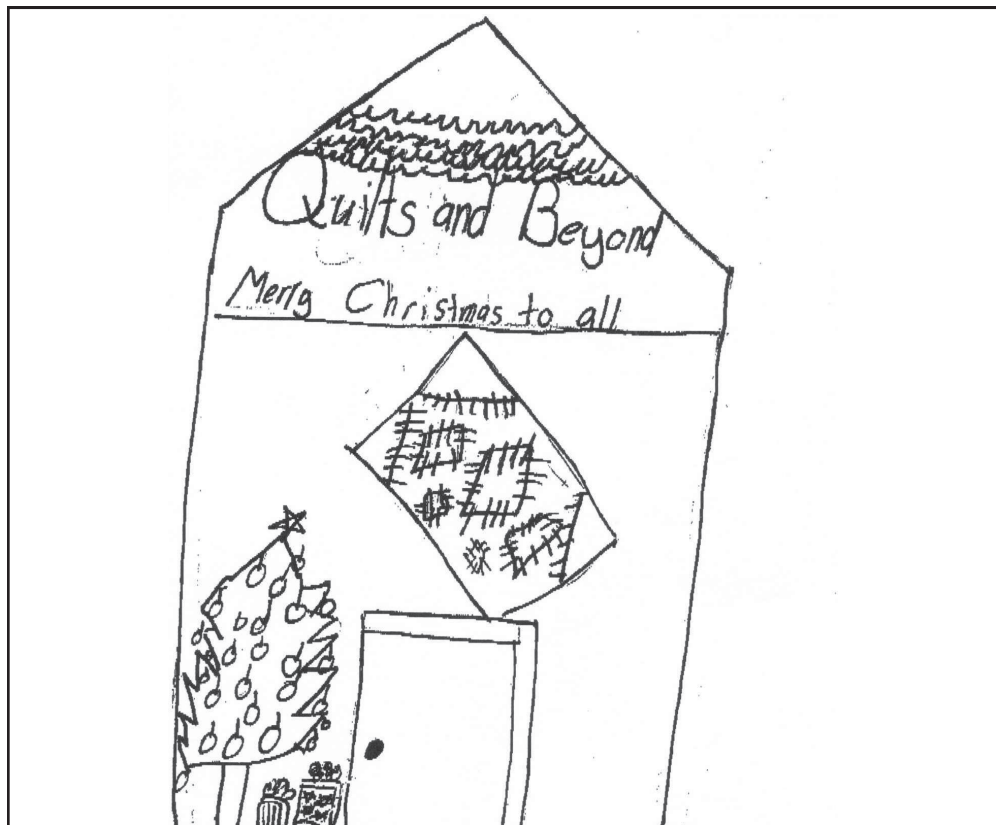 Quilts and Beyond
Merry Christmas to all